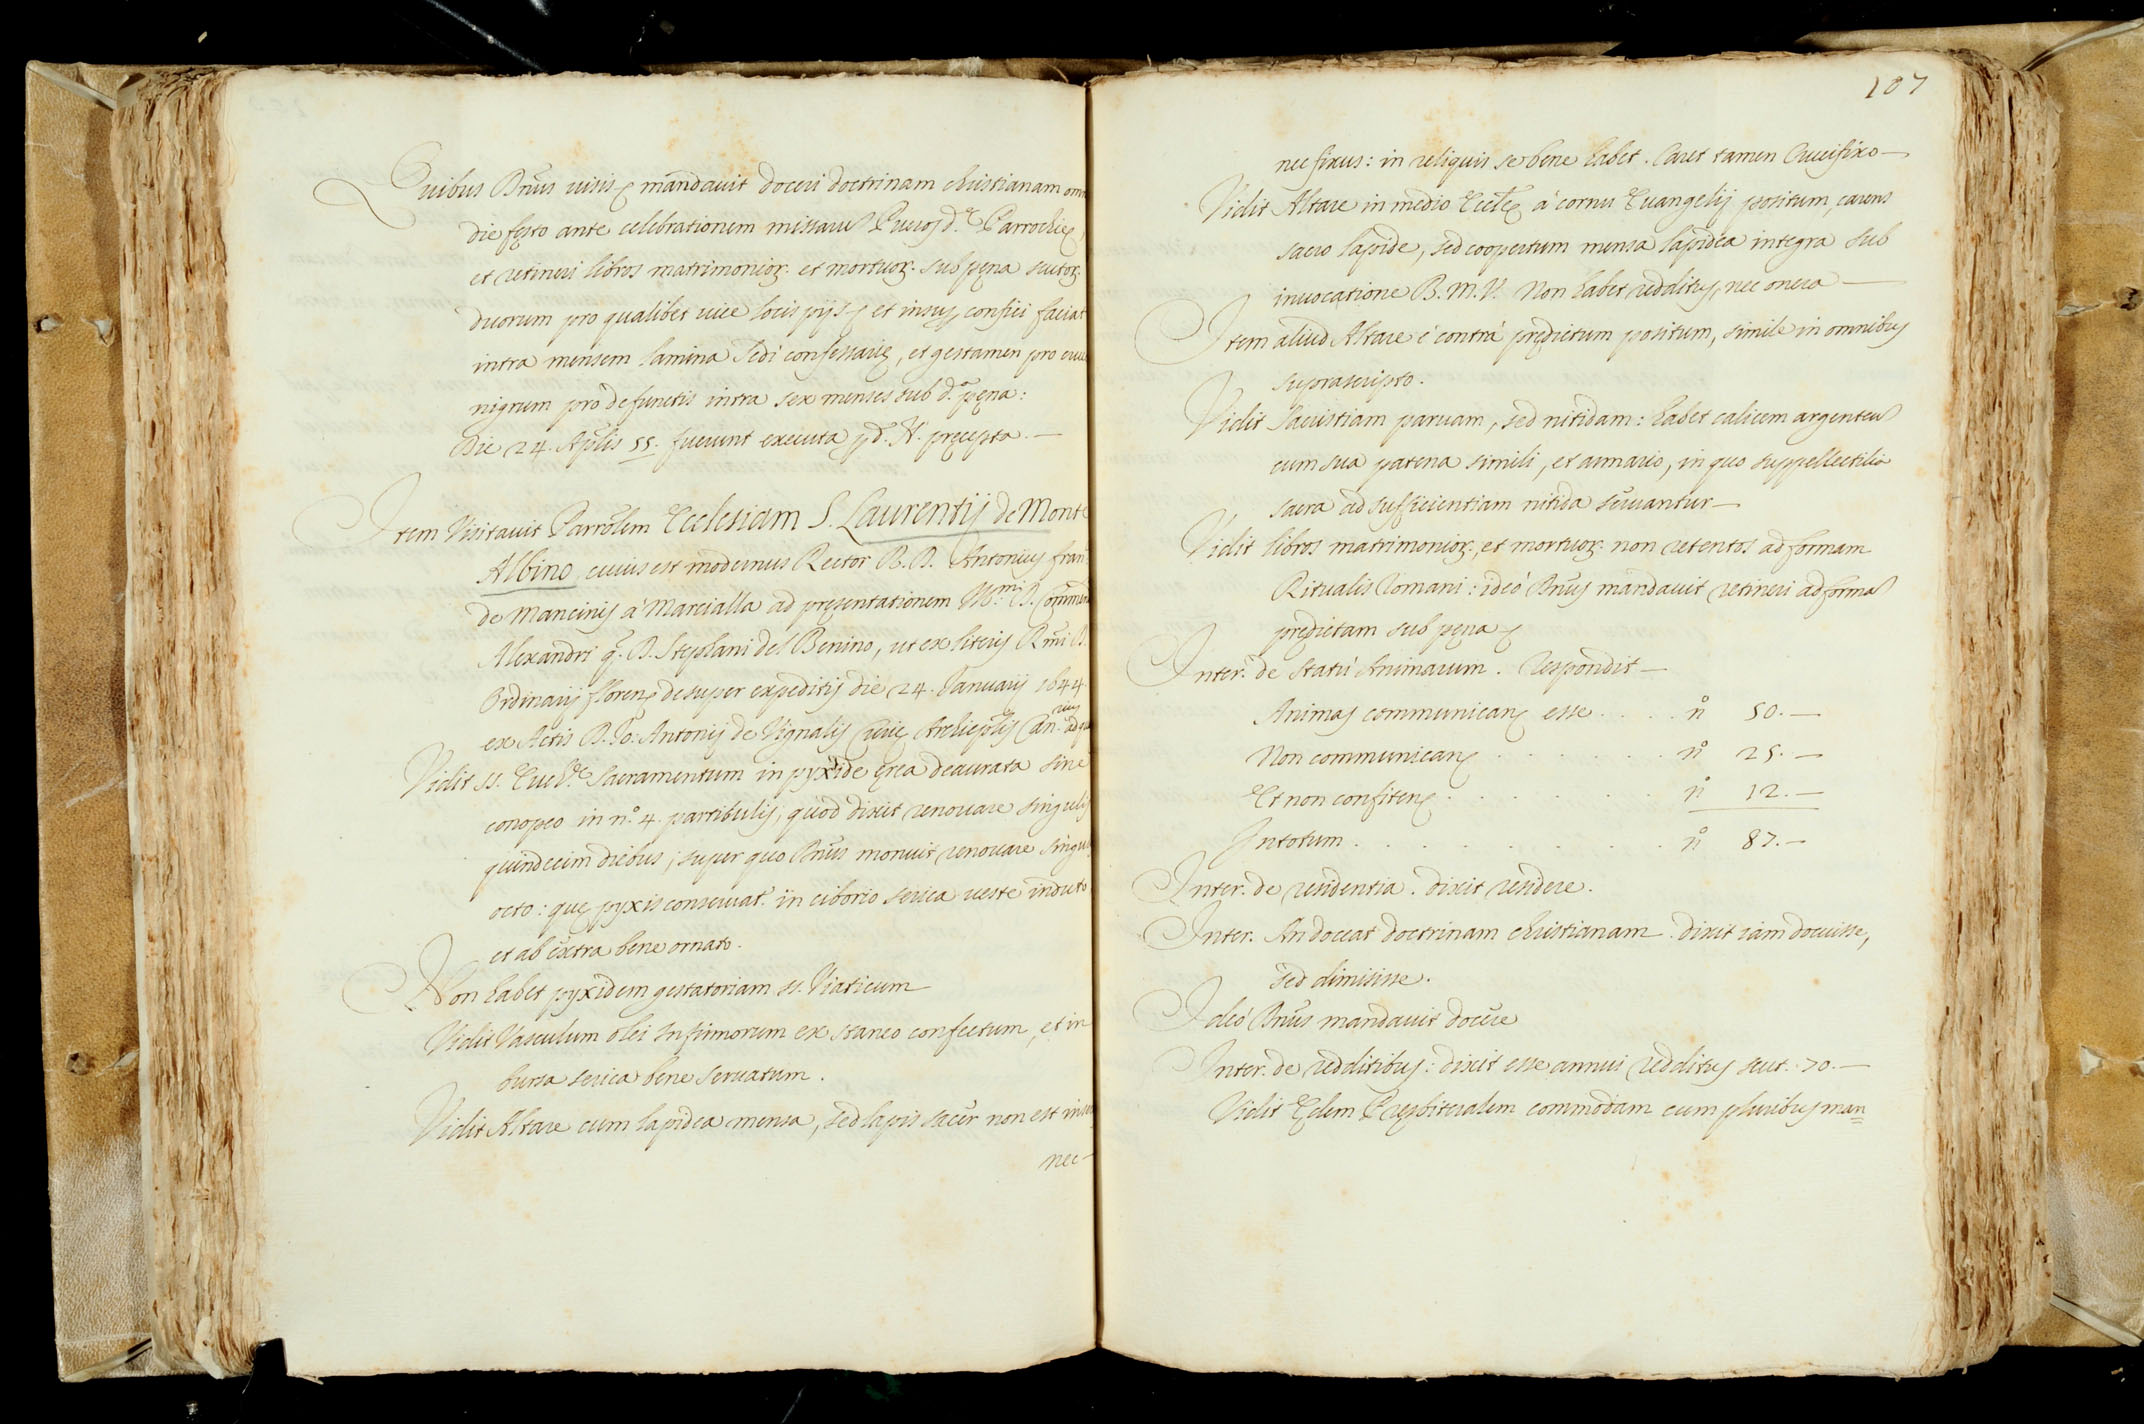 Quibus D̃nus uisis mandauit doceri doctrinam christianam omni
die festo ante celebrationem missarũ Pueros d.ę Parrochię,
et retineri libros matrimonioꝝ. et mortuoꝝ. sub pęna scutoꝝ.
duorum pro qualibet uice locis pijs et insuꝑ confici faciat
intra mensem lamina sedi confessarię, et gestamen pro
nigrum pro defunctis intra sex menses sub d.ᵃ pęna:
Die 24. Aplis 55. fuerunt executa pręcepta.—
Item Visitauit Parrõlem Ecclesiam S. Laurentij de Monte
Albino, cuius est modernus Rector R. D. Antonius
de Mancinis à Marcialla ad pręsentationem Ill.mi D.
Alexandri q. D. Stephani del Benino, ut ex literis Rmi D.
Ordinarij floren desuper expeditis die 24. Januarij 1644.
ex Actis D. Jo: Antonij de Vignalis Curię Archiepl̃is Can.rius
Vidit ss. Euch.ę Sacramentum in pyxide ęrea deaurata sine
conopeo in n.º 4. partibulis, quod dixit renouare singulis
quindecim diebus; super quo D̃nus monuit renouare
octo: quę pyxis conseruat. in ciborio serica ueste induto
et ab extra bene ornato.
Non habet pyxidem gestatoriam ss. Viaticum
Vidit Vasculum olei Infirmorum ex staneo confectum, et in
bursa serica bene seruatum.
Vidit Altare cum lapidea mensa, sed lapis sacer non est
nec
107
nec fixus: in reliquis se bene habet. Caret tamen Crucifixo—
Vidit Altare in medio Eccl̃ę à cornu Euangelij positum, carens
sacro lapide, sed coopertum mensa lapidea integra sub
inuocatione B. M. V. Non habet redditus, nec onera—
Item aliud Altare è contrà prędictum positum, simile in omnibus
suprascripto.
Vidit Sacristiam paruam, sed nitidam: habet calicem argenteũ
cum sua patena simili, et armario, in quo suppellectilia
sacra ad sufficientiam nitida seruantur—
Vidit libros matrimonioꝝ., et mortuoꝝ. non retentos ad formam
Ritualis Romani: ideò D̃nus mandauit retineri ad formã
prędictam sub pęna
Inter. de Statù Animarum. Respondit—
Animas communican esse . . . . nº 50.—
Non communican . . . . . . . nº 25.—
Et non confiten . . . . . . . nº 12.—
In totum . . . . . . . . . . nº 87.—
Inter. de residentia. dixit residere.
Inter. An doceat doctrinam christianam. dixit iam docuisse,
sed dimisisse.
Ideò D̃nus mandauit docere
Inter. de redditibus: dixit esse annui redditus scut. 70.—
Vidit Ędem Presbiteralem commodam cum pluribus man=